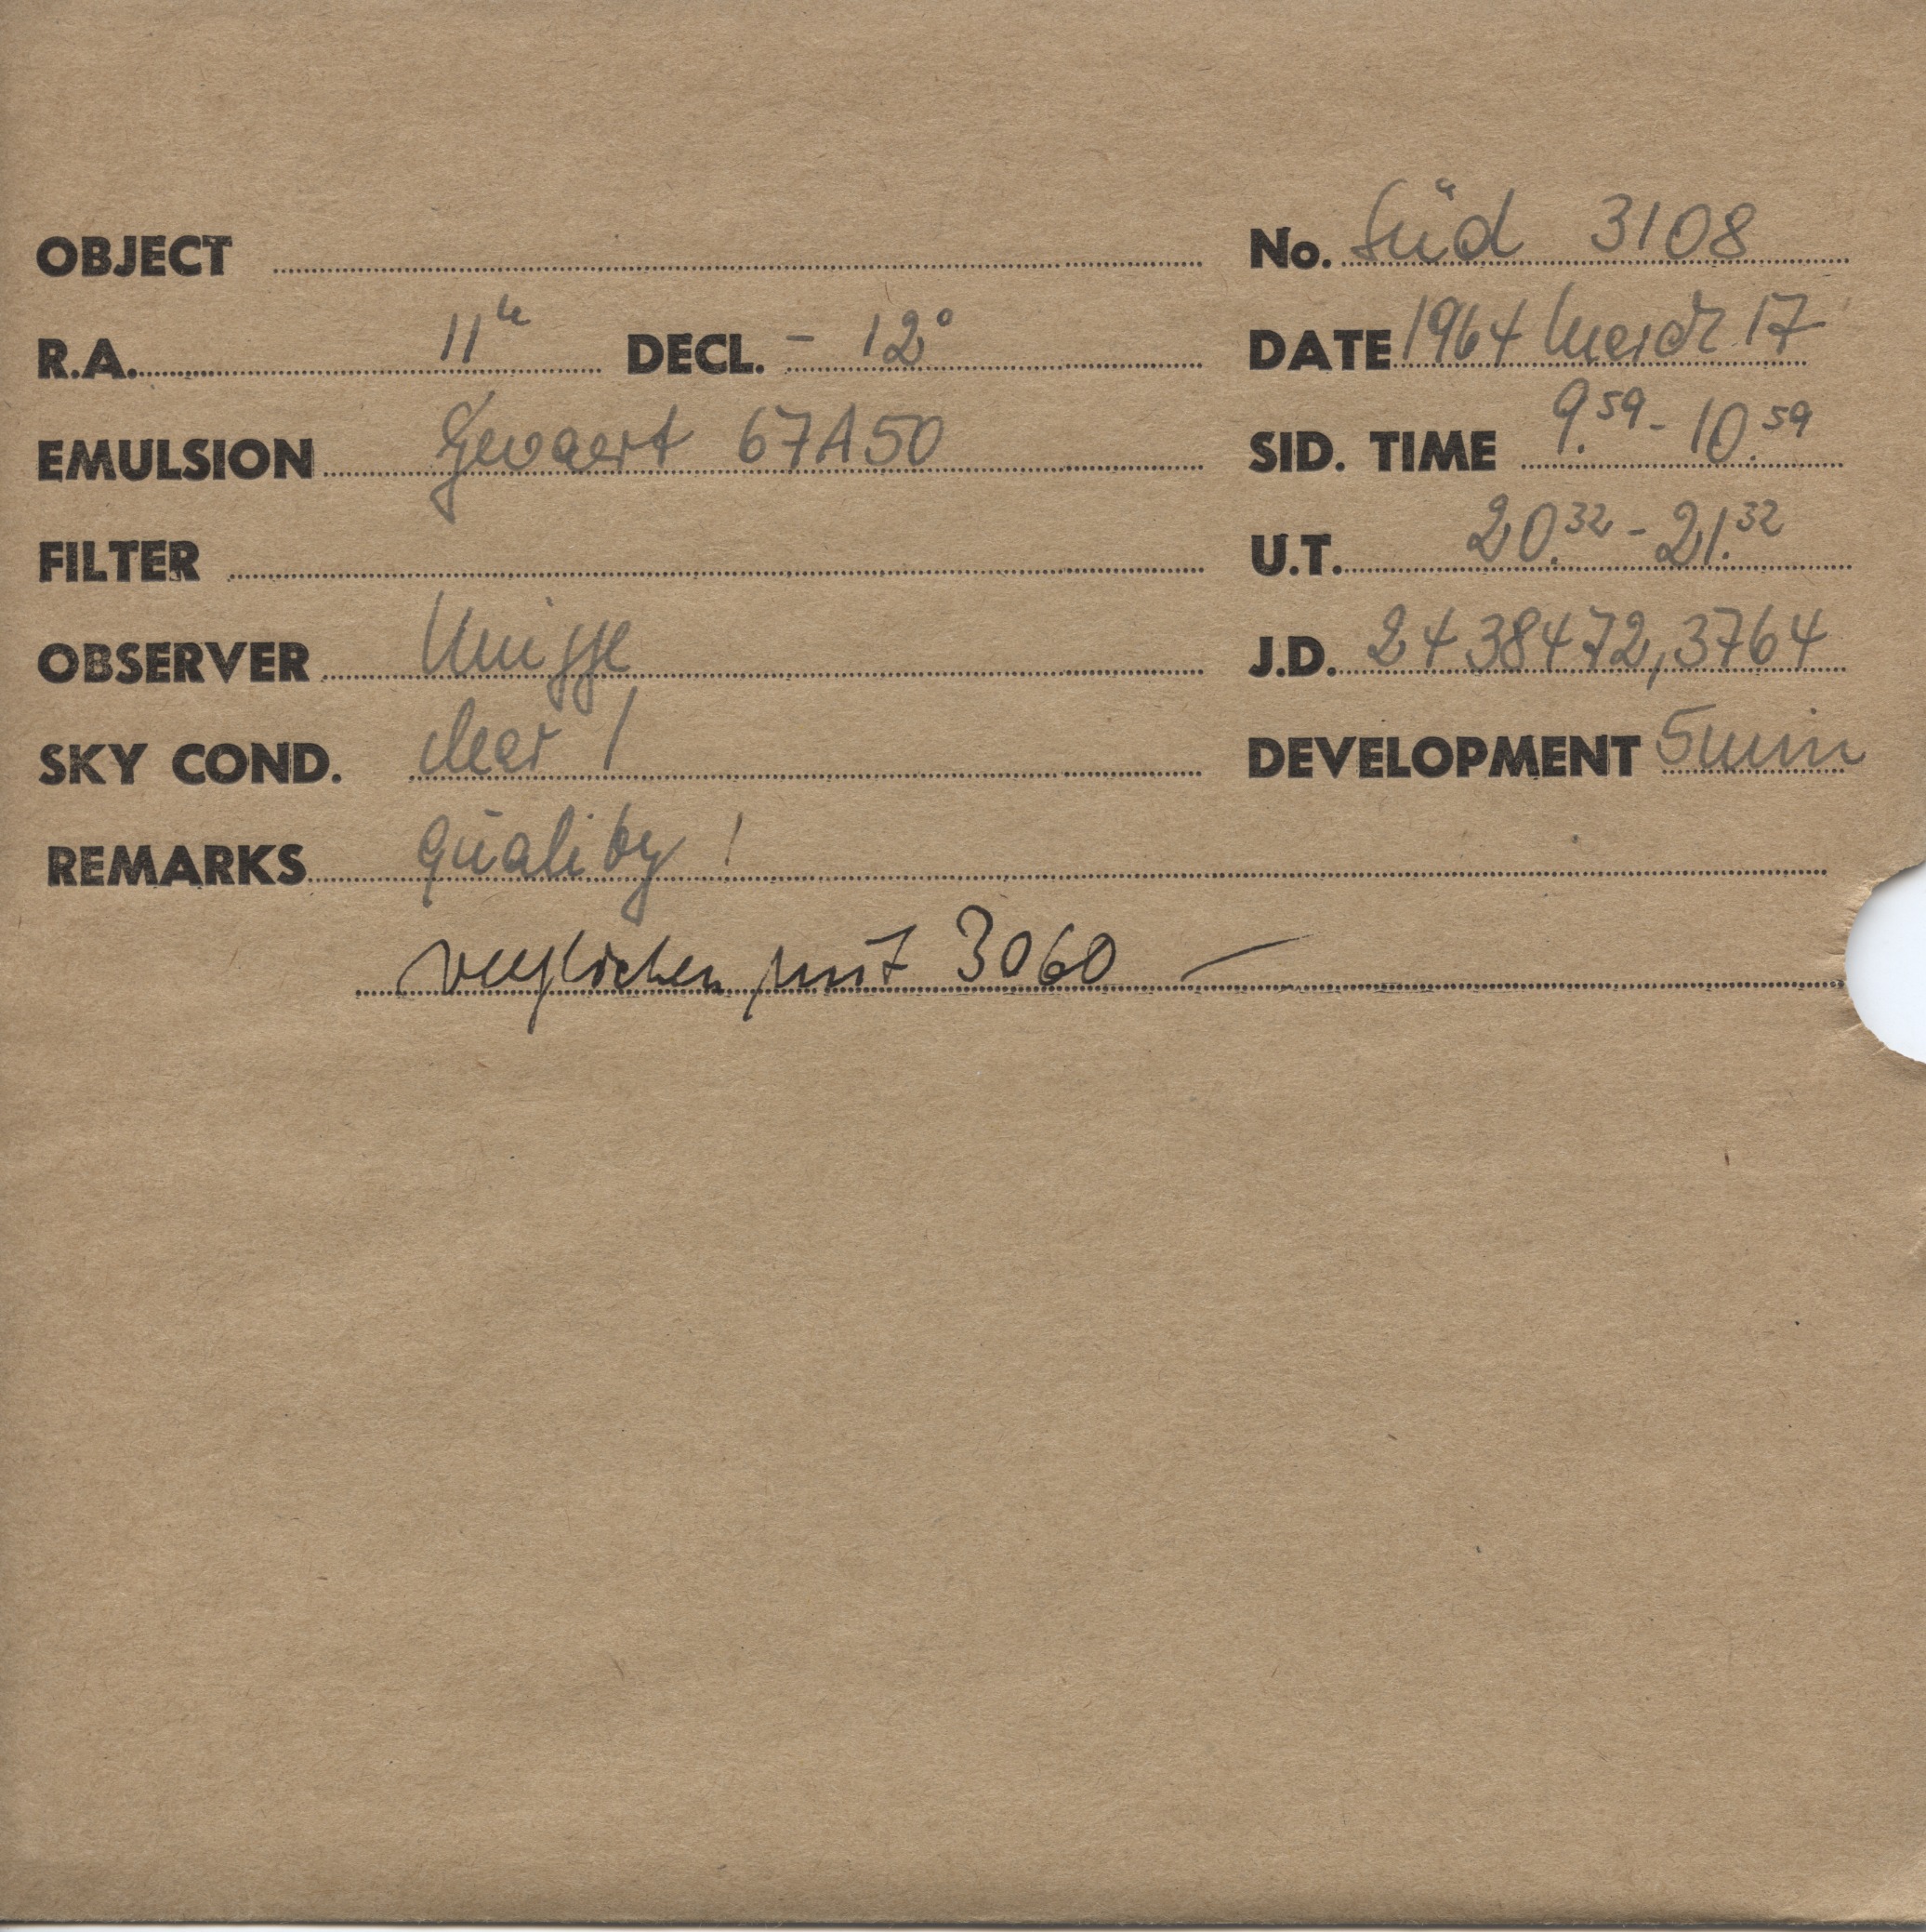 OBJECT No. Süd 3108
R.A. 11h DECL. - 12° DATE 1964 March 17
EMULSION Gevaert 67A50 SID. TIME 9.59 - 10.59
FILTER U.T. 20.32 - 21.32
OBSERVER J.D. 2438472,3764
SKY COND. clear 1 DEVELOPMENT 5 min
REMARKS quality 1
verglichen mit 3060 —